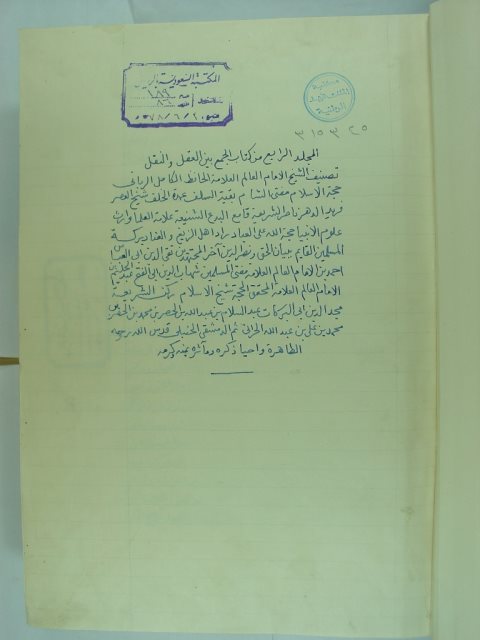 المكتبة السعودية
مكتبة
الملك فهد
الوطنية
٣١٥٣٢٥
المجلد الرابع من كتاب الجمع بين العقل والنقل
تصنيف الشيخ الامام العالم العلامة الحافظ الكامل الرباني
حجة الاسلام مفتى الشام بقية السلف عمدة الخلف شيخ العصر
فريد الدهر ناصر الشريعة قامع البدع الشنيعة علامة العلما وارث
علوم الانبيا حجة الله على العباد راد اهل الزيغ والعناد بركة
المسلمين القايم ببيان الحق ونصر الدين آخر المجتهدين تقى الدين ابى العباس
احمد بن الامام العالم العلامة مفتى المسلمين شهاب الدين ابى عبد الحليم بن
الامام العالم العلامة المحقق الحجة شيخ الاسلام بركة الشريعة
مجد الدين ابى البركات عبد السلام بن عبد الله بن ابى بن محمد بن الخضر بن
محمد بن على بن عبد الله الحرانى ثم الدمشقى الحنبلى قدس الله روحه
الطاهرة واحيا ذكره ومآثره بمنه وكرمه